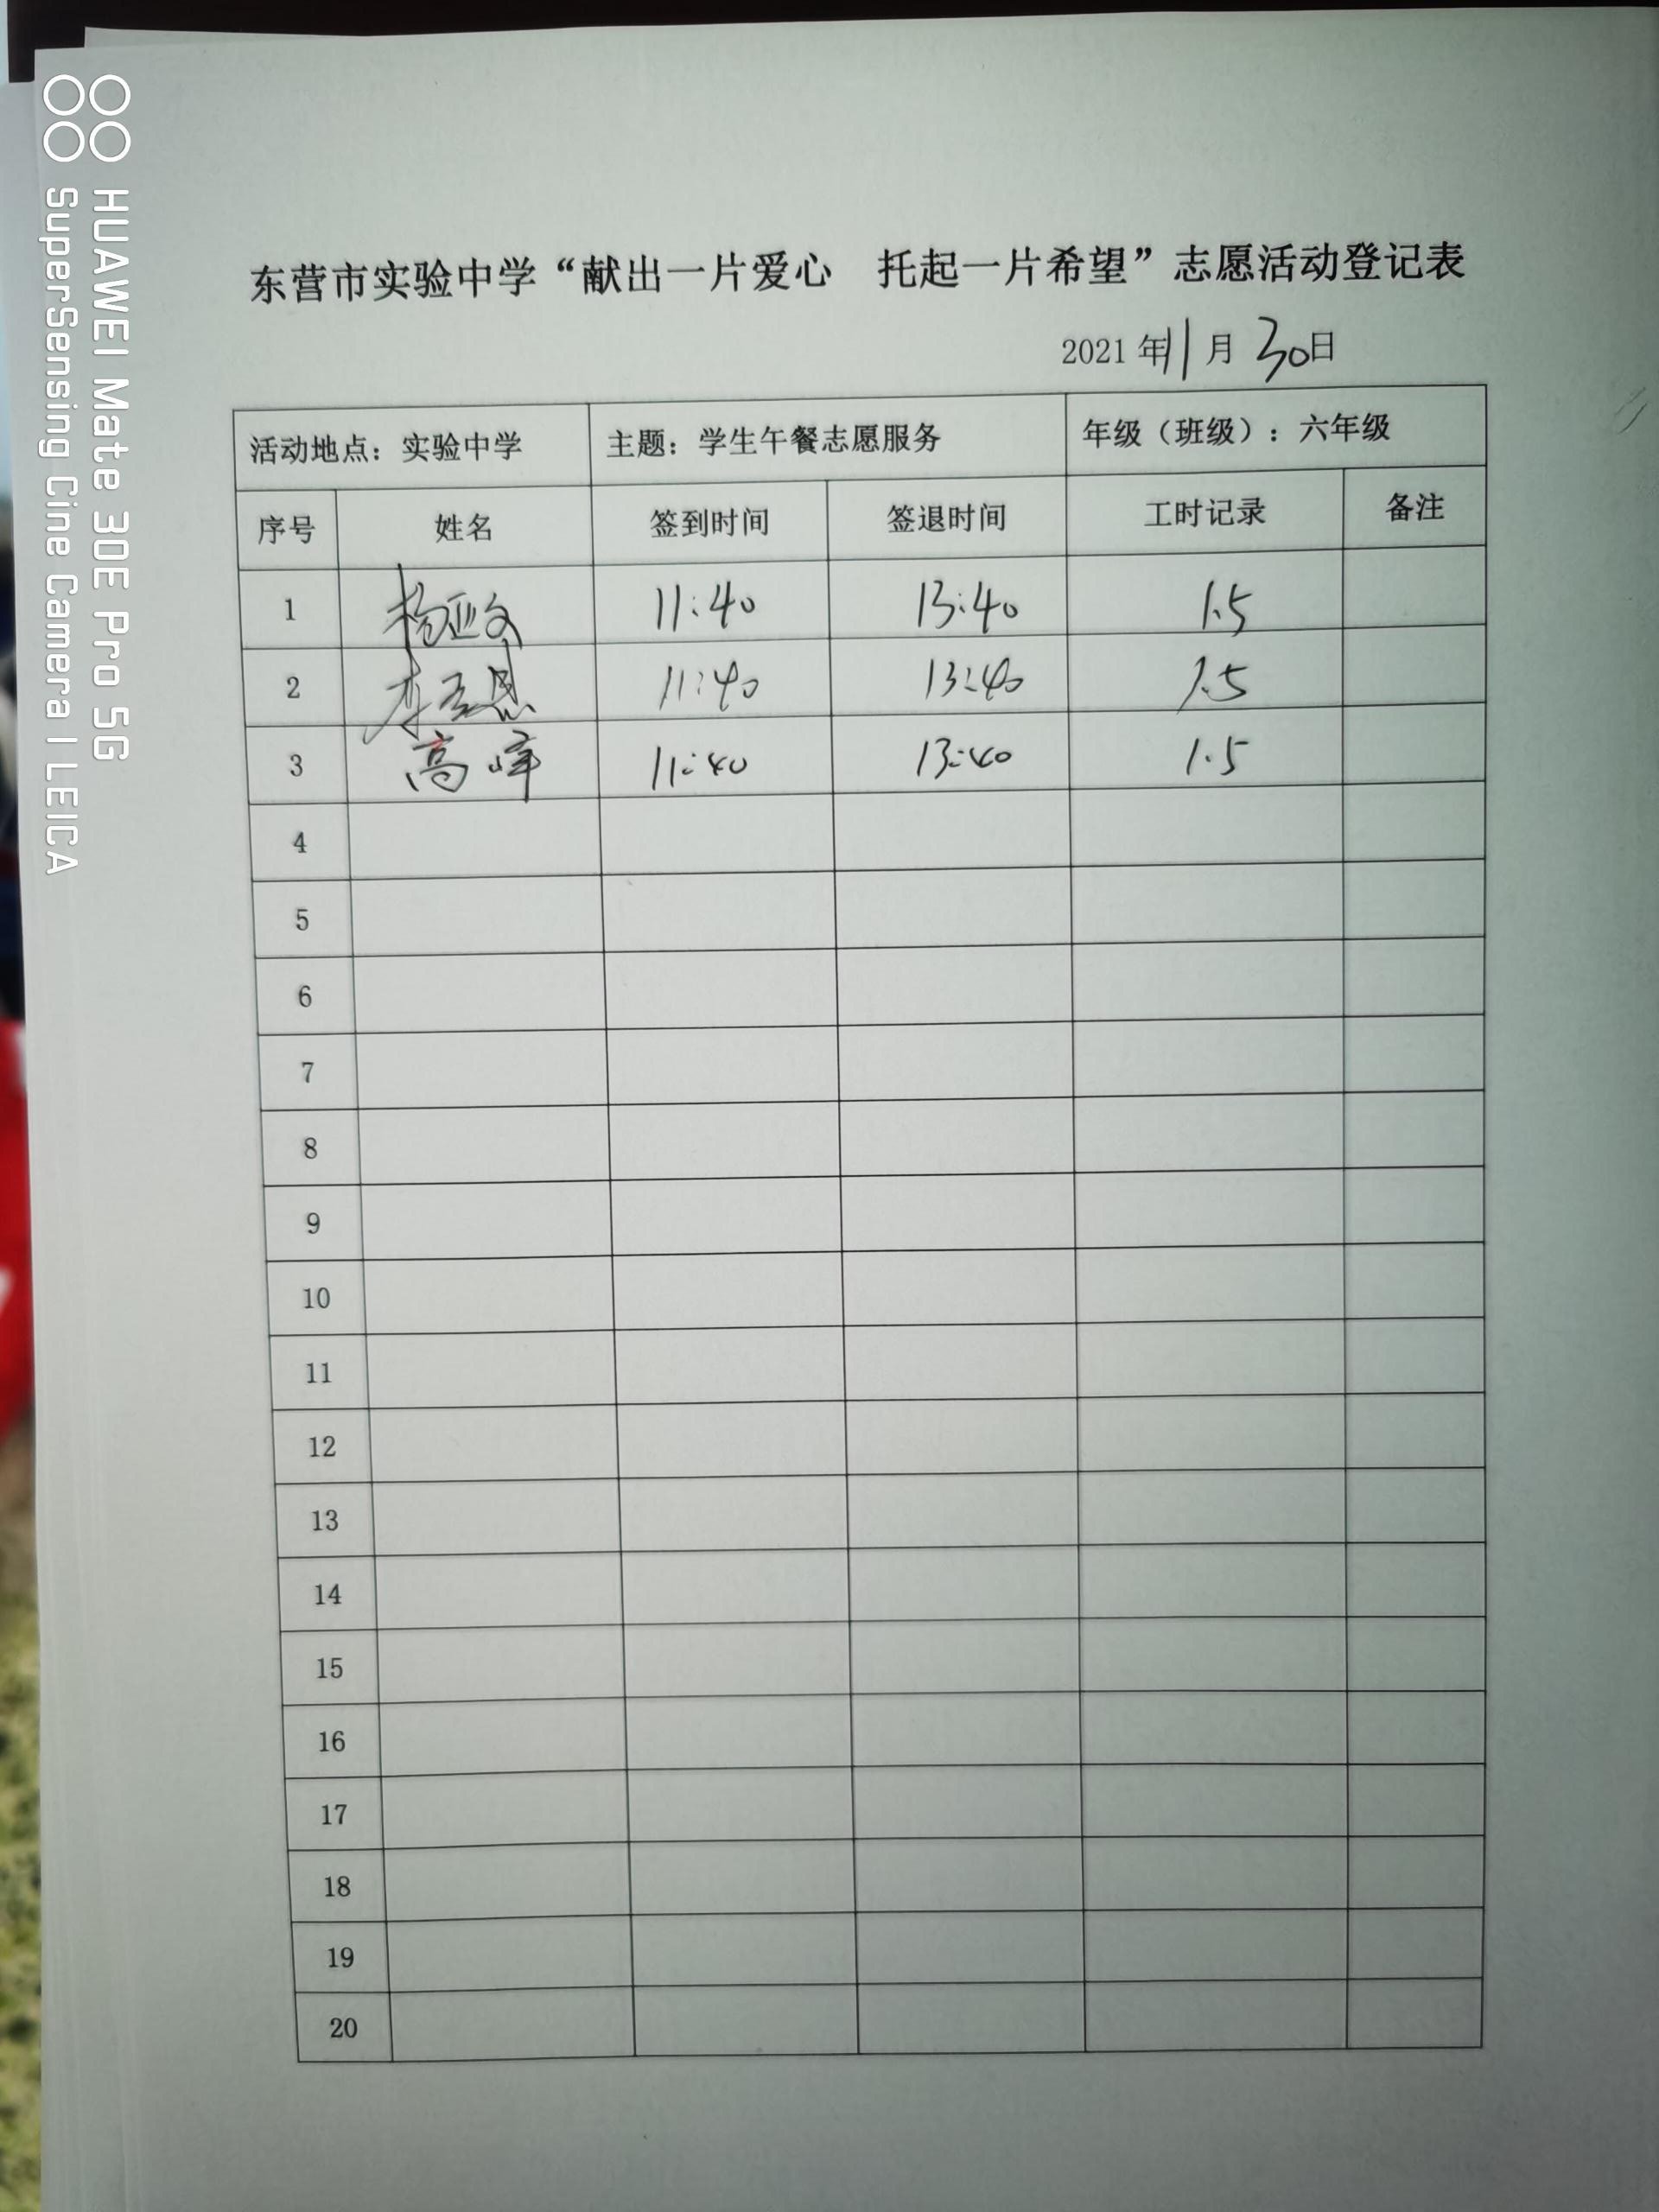 东营市实验中学“献出一片爱心 托起一片希望”志愿活动登记表
2021年11月30日
活动地点：实验中学 主题：学生午餐志愿服务 年级（班级）：六年级
序号 姓名 签到时间 签退时间 工时记录 备注
1 杨亚文 11:40 13:40 1.5
2 李 11:40 13:40 1.5
3 高峰 11:40 13:40 1.5
4
5
6
7
8
9
10
11
12
13
14
15
16
17
18
19
20
HUAWEI Mate 30E Pro 5G
SuperSensing Cine Camera | LEICA